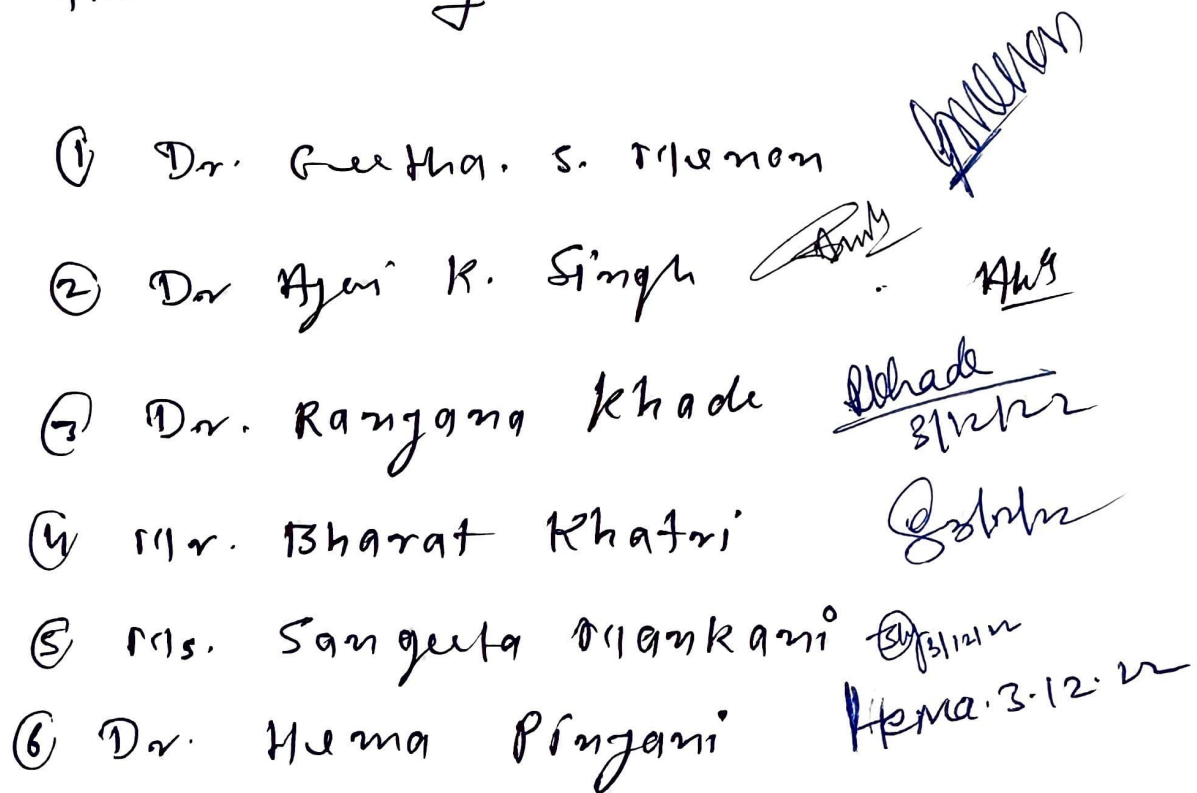 ① Dr. Geetha. S. Menon Gmenon
② Dr Ajai K. Singh AKS
③ Dr. Ranjana Khade RKhade
3/12/22
④ Mr. Bharat Khatri 3/12/22
⑤ Ms. Sangeeta Mankani 3/12/22
⑥ Dr. Hema Pinjani Hema. 3.12.22